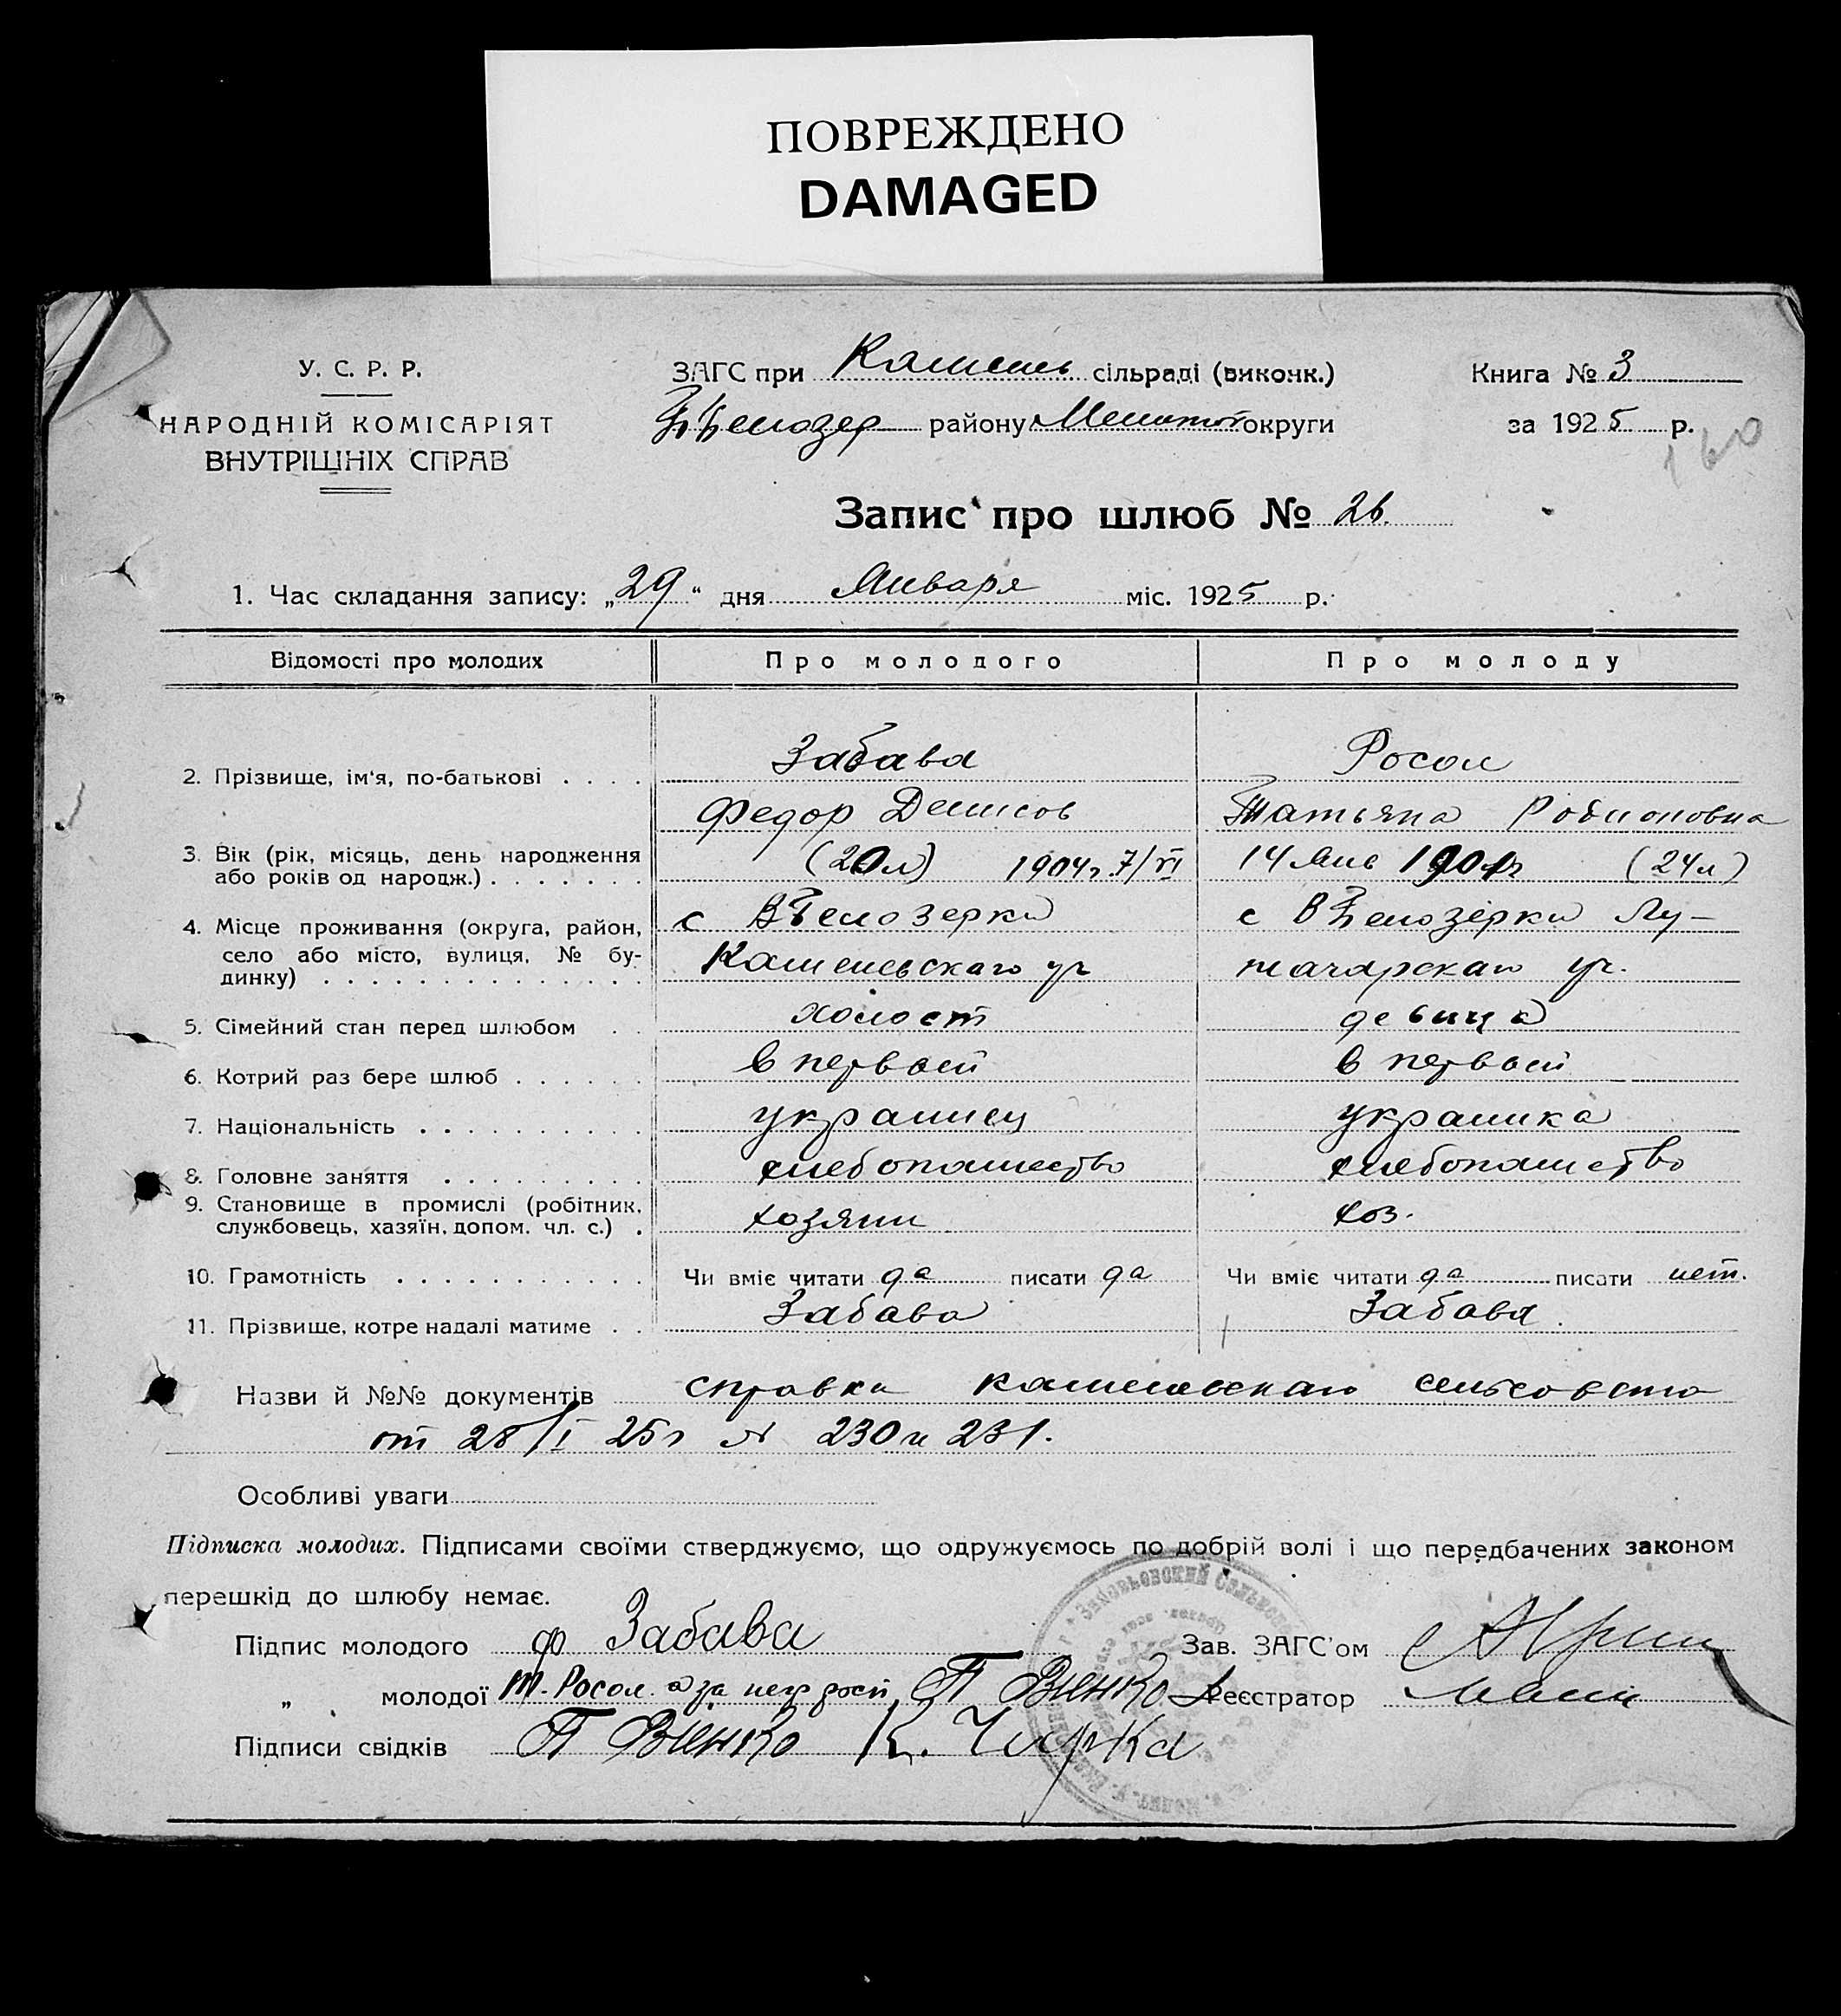 ПОВРЕЖДЕНО
DAMAGED
У. С. Р. Р.
НАРОДНІЙ КОМІСАРІЯТ
ВНУТРІШНІХ СПРАВ
ЗАГС при Каменев сільраді (виконк.)
ВБелозер району Мелитоп округи
Книга № 3
за 1925 р.
160
Запис про шлюб № 26.
1. Час складання запису: „29“ дня Января міс. 1925 р.
Відомості про молодих Про молодого Про молоду
2. Прізвище, ім'я, по-батькові . . . . Забава Росол
Федор Денисов Татьяна Родионовна
3. Вік (рік, місяць, день народження або років од народж.) . . . . . . . (20 л) 1904 г. 7/VI 14 Янв 1901 г (24 л)
4. Місце проживання (округа, район, с ВБелозерки с ВБелозерки Лу-
село або місто, вулиця, № будинку) . . . . Каменевскаго уч начарскаго уч.
5. Сімейний стан перед шлюбом . . холост девица
6. Котрий раз бере шлюб . . . . . . в первой в первой
7. Національність . . . . . . . . . . украинец украинка
8. Головне заняття . . . . . . . . . хлебопашество хлебопашество
9. Становище в промислі (робітник, службовець, хазяїн, допом. чл. с.) . хозяин хоз.
10. Грамотність . . . . . . . . . . . Чи вміє читати да писати да Чи вміє читати да писати нет.
11. Прізвище, котре надалі матиме . . Забава Забава.
Назви й №№ документів справки каменевскаго сельсовета
от 28/I 25 г № 230 и 231.
Особливі уваги
Підписка молодих. Підписами своїми стверджуємо, що одружуємось по добрій волі і що передбачених законом
перешкід до шлюбу немає.
Підпис молодого Ф Забава Зав. ЗАГС'ом
„ молодої Т. Росол а за негр расп П Вненко Реєстратор
Підписи свідків П Вненко К. Чирка